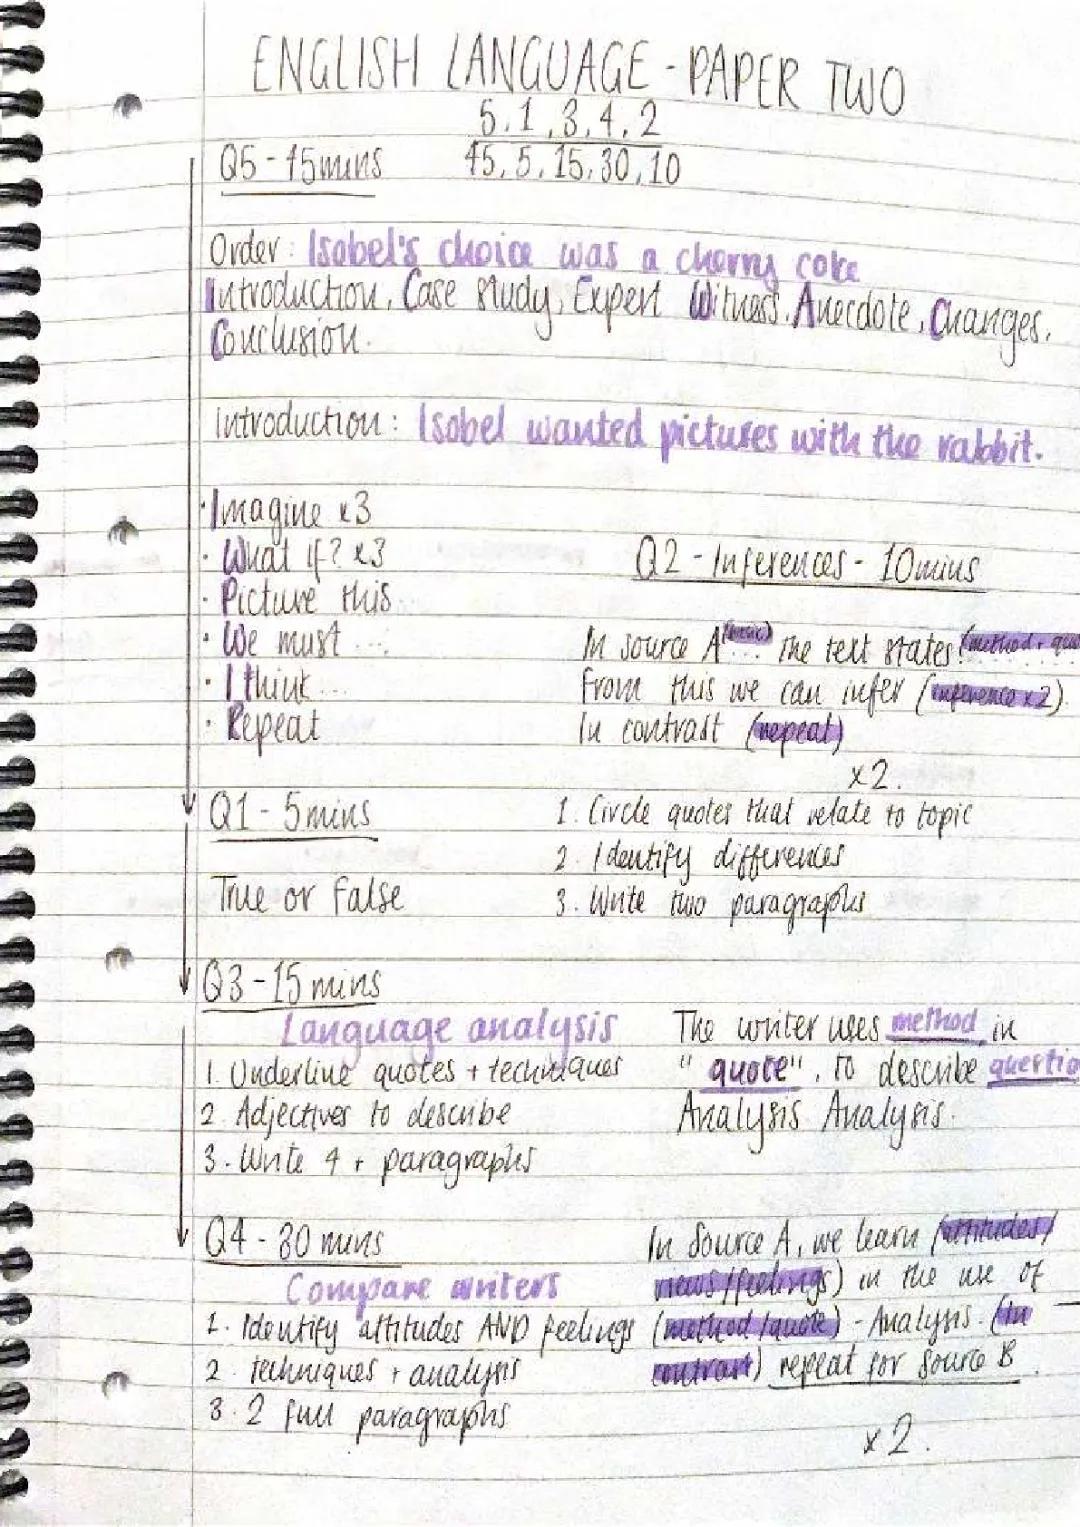 ENGLISH LANGUAGE - PAPER TWO
5, 1, 3, 4, 2
45, 5, 15, 30, 10
Q5 - 45mins
Order: Isobel's choice was a cherry coke
Introduction, Case study, Expert Witness, Anecdote, Changes,
Conclusion.
Introduction: Isobel wanted pictures with the rabbit.
· Imagine x3
· What if? x3
· Picture this
· We must ...
· I think ...
· Repeat
Q2 - Inferences - 10mins
In source A (topic) ... the text states (method + quo
From this we can infer (inference x 2).
In contrast (repeat)
x2.
1. Circle quotes that relate to topic
2. Identify differences
3. Write two paragraphs
Q1 - 5mins
True or False
Q3 - 15 mins
Language analysis
1. Underline quotes + techniques
2. Adjectives to describe
3. Write 4 + paragraphs
The writer uses method in
"quote", to describe questio
Analysis. Analysis.
Q4 - 30 mins
Compare writers
1. Identify attitudes AND feelings
2. Techniques + analysis
3. 2 full paragraphs
In Source A, we learn (attitudes/
views/feelings) in the use of
(method/quote) - Analysis. (In
contrast) repeat for Source B.
x2.